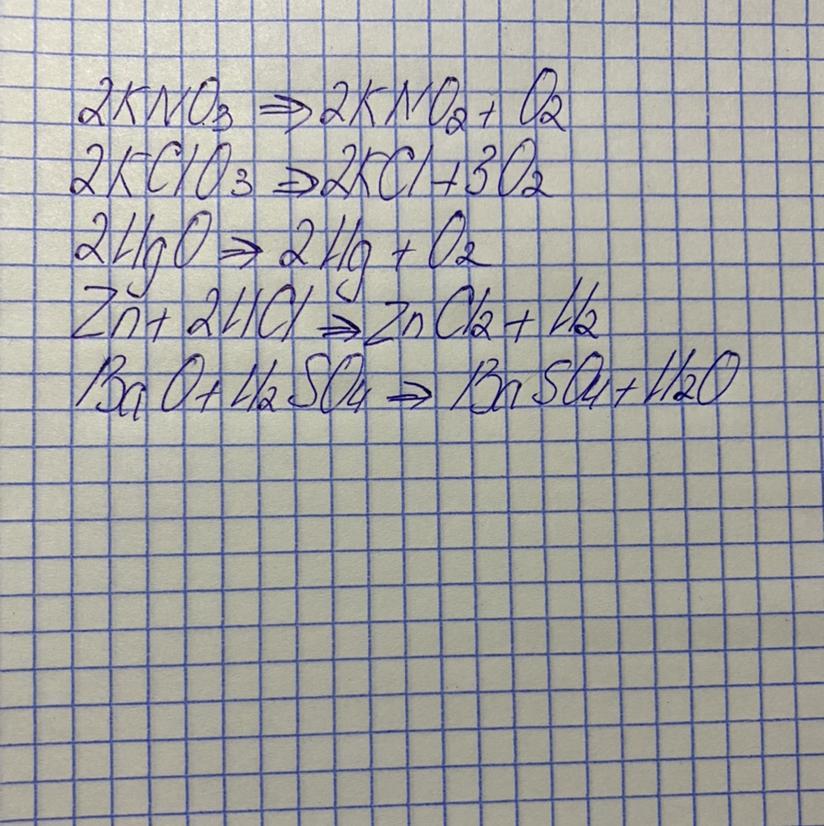 2KNO₃ ⇒ 2KNO₂ + O₂
2KClO₃ ⇒ 2KCl + 3O₂
2HgO ⇒ 2Hg + O₂
Zn + 2HCl ⇒ ZnCl₂ + H₂
BaO + H₂SO₄ ⇒ BaSO₄ + H₂O